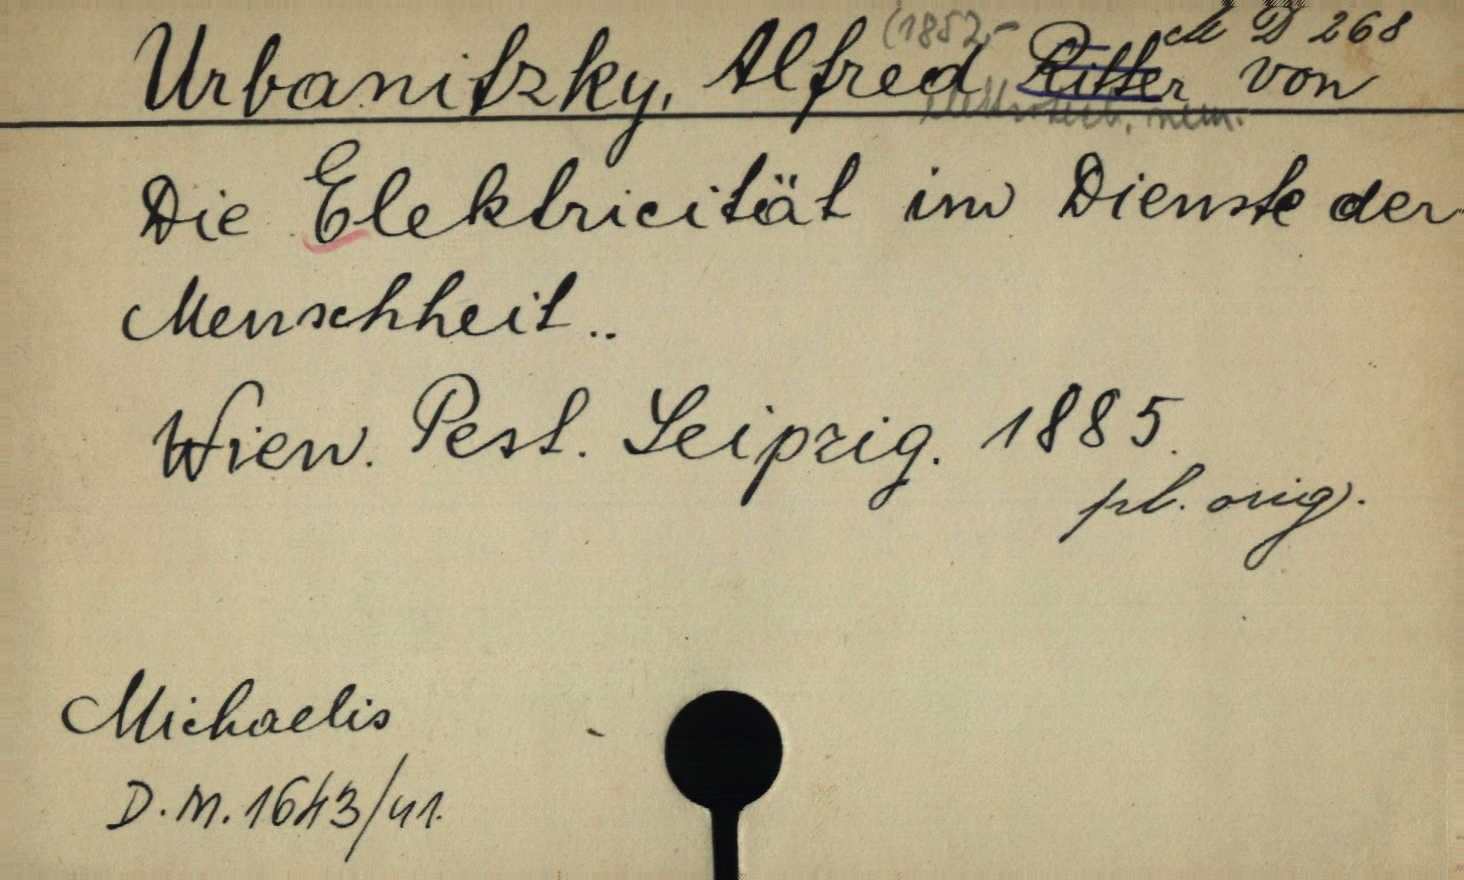 (1852-
ck D 268
Urbanitzky, Alfred Ritter von
elektrotech. něm.
Die Elektricität im Dienste der
Menschheit..
Wien. Pest. Leipzig. 1885.
pl. orig.
Michaelis
D.M. 1643/41.